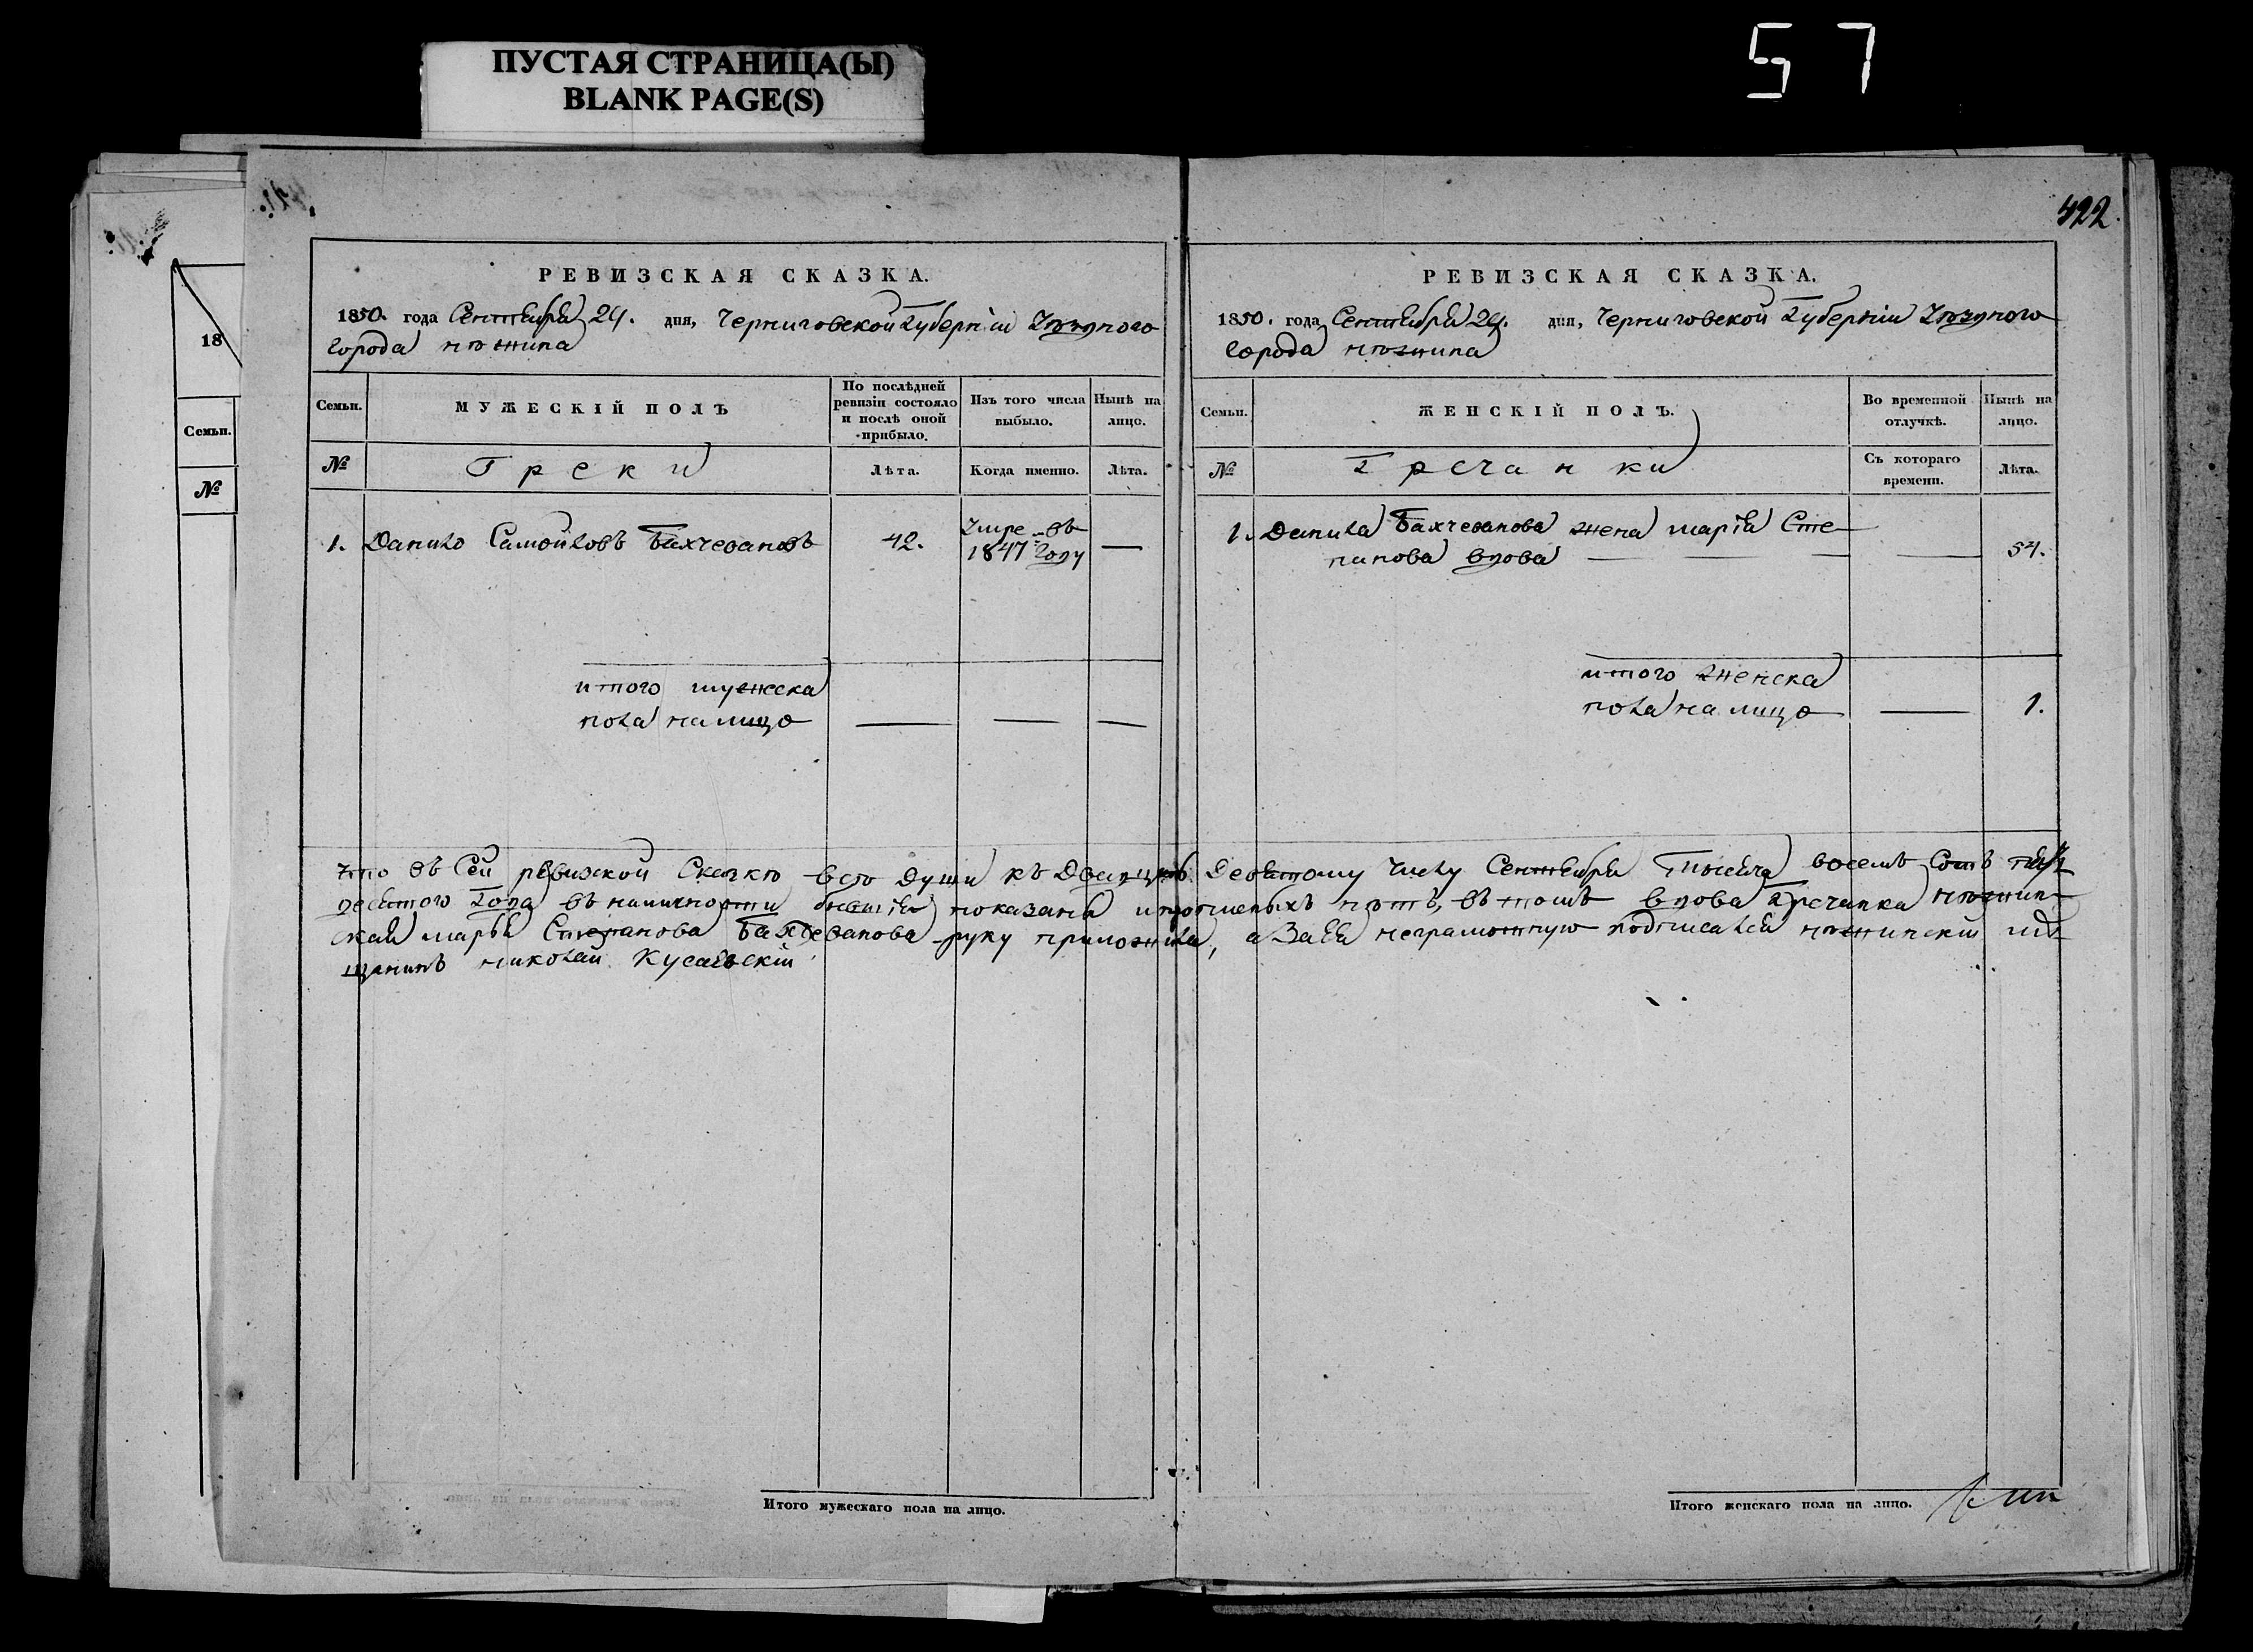 ПУСТАЯ СТРАНИЦА(Ы)
BLANK PAGE(S)
57
422.
18
Семьи.
№
РЕВИЗСКАЯ СКАЗКА.
1850. года Сентября 29. дня, Черниговской Губерніи Уѣзднаго
города нѣжина
Семьи.
МУЖЕСКІЙ ПОЛЪ
По послѣдней ревизіи состояло и послѣ оной прибыло.
Изъ того числа выбыло.
Нынѣ на лицо.
№
Греки
Лѣта.
Когда именно.
Лѣта.
1. Данило Самойловъ Бахчевановъ 42. Умре въ 1847 году —
итого мужеска
пола налицо — — —
РЕВИЗСКАЯ СКАЗКА.
1850. года Сентября 29. дня, Черниговской Губерніи Уѣзднаго
города нѣжина
Семьи.
ЖЕНСКІЙ ПОЛЪ.
Во временной отлучкѣ.
Нынѣ на лицо.
№
Гречанки
Съ котораго времени.
Лѣта.
1. Данила Бахчеванова жена марія Сте-
панова вдова — — — 54.
итого женска
пола на лицо — 1.
Что въ Сей ревизской Сказкѣ всѣ души къ Двадцать Девятому Числу Сентября Тысяча восемъ Сотъ пять
десятого Года въ наличности бывшія показаны и прописныхъ нѣтъ, въ томъ вдова Гречанка нѣжин-
ская марья Степанова Бахчеванова руку приложила, а За Ея неграмотную подписался нѣжинскій мѣ-
щанинъ николай
Итого мужескаго пола на лицо.
Итого женскаго пола на лицо.